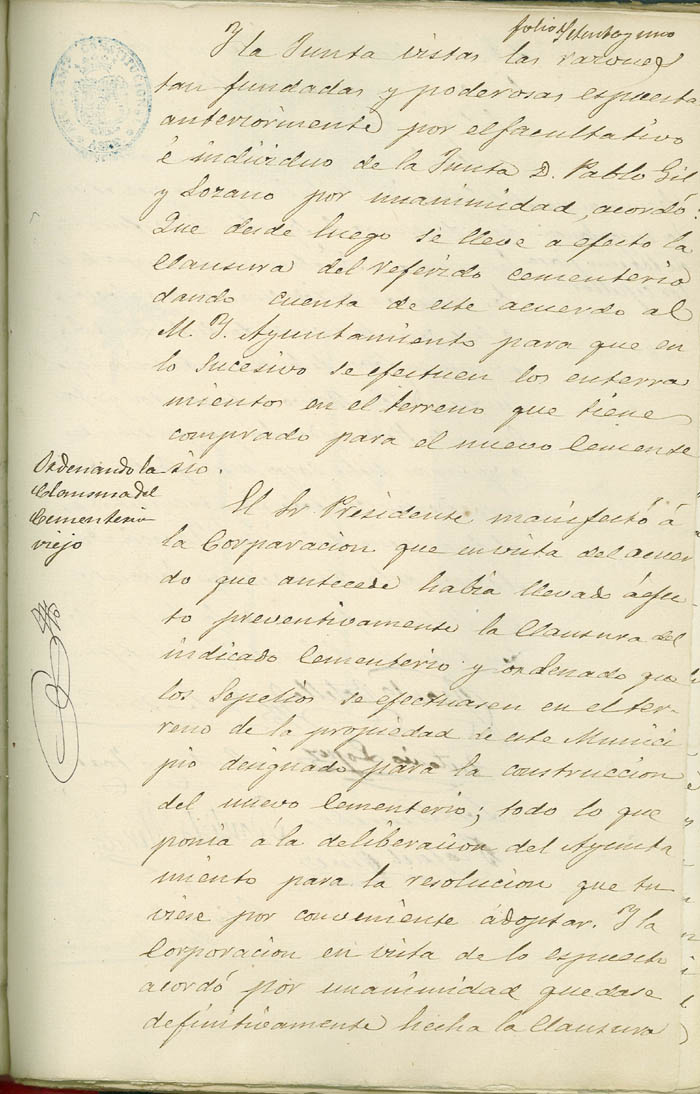 folio setenta y uno
Y la Junta vistas las razones
tan fundadas y poderosas espuesta
anteriormente por el facultativo
é individuo de la Junta D. Pablo Gil
y Lozano por unanimidad, acordó:
Que desde luego se lleve a efecto la
Clausura del referido cementerio
dando cuenta de este acuerdo al
M. Y. Ayuntamiento para que en
lo sucesivo se efectuen los enterra
mientos en el terreno que tiene
comprado para el nuevo Cemente
rio.
Ordenando la
Clausura del
Cementerio
viejo
El Sr Presidente manifestó á
la Corporacion que en vista del acuer
do que antecede habia llevado á efec
to preventivamente la Clausura del
indicado Cementerio y ordenado que
los Sepelios se efectuasen en el ter-
reno de la propiedad de este Munici
pio designado para la construccion
del nuevo Cementerio; todo lo que
ponia á la deliberacion del Ayunta
miento para la resolucion que tu
viese por conveniente adoptar. Y la
Corporacion en vista de lo espuesto
acordó por unanimidad quedase
definitivamente hecha la Clausura